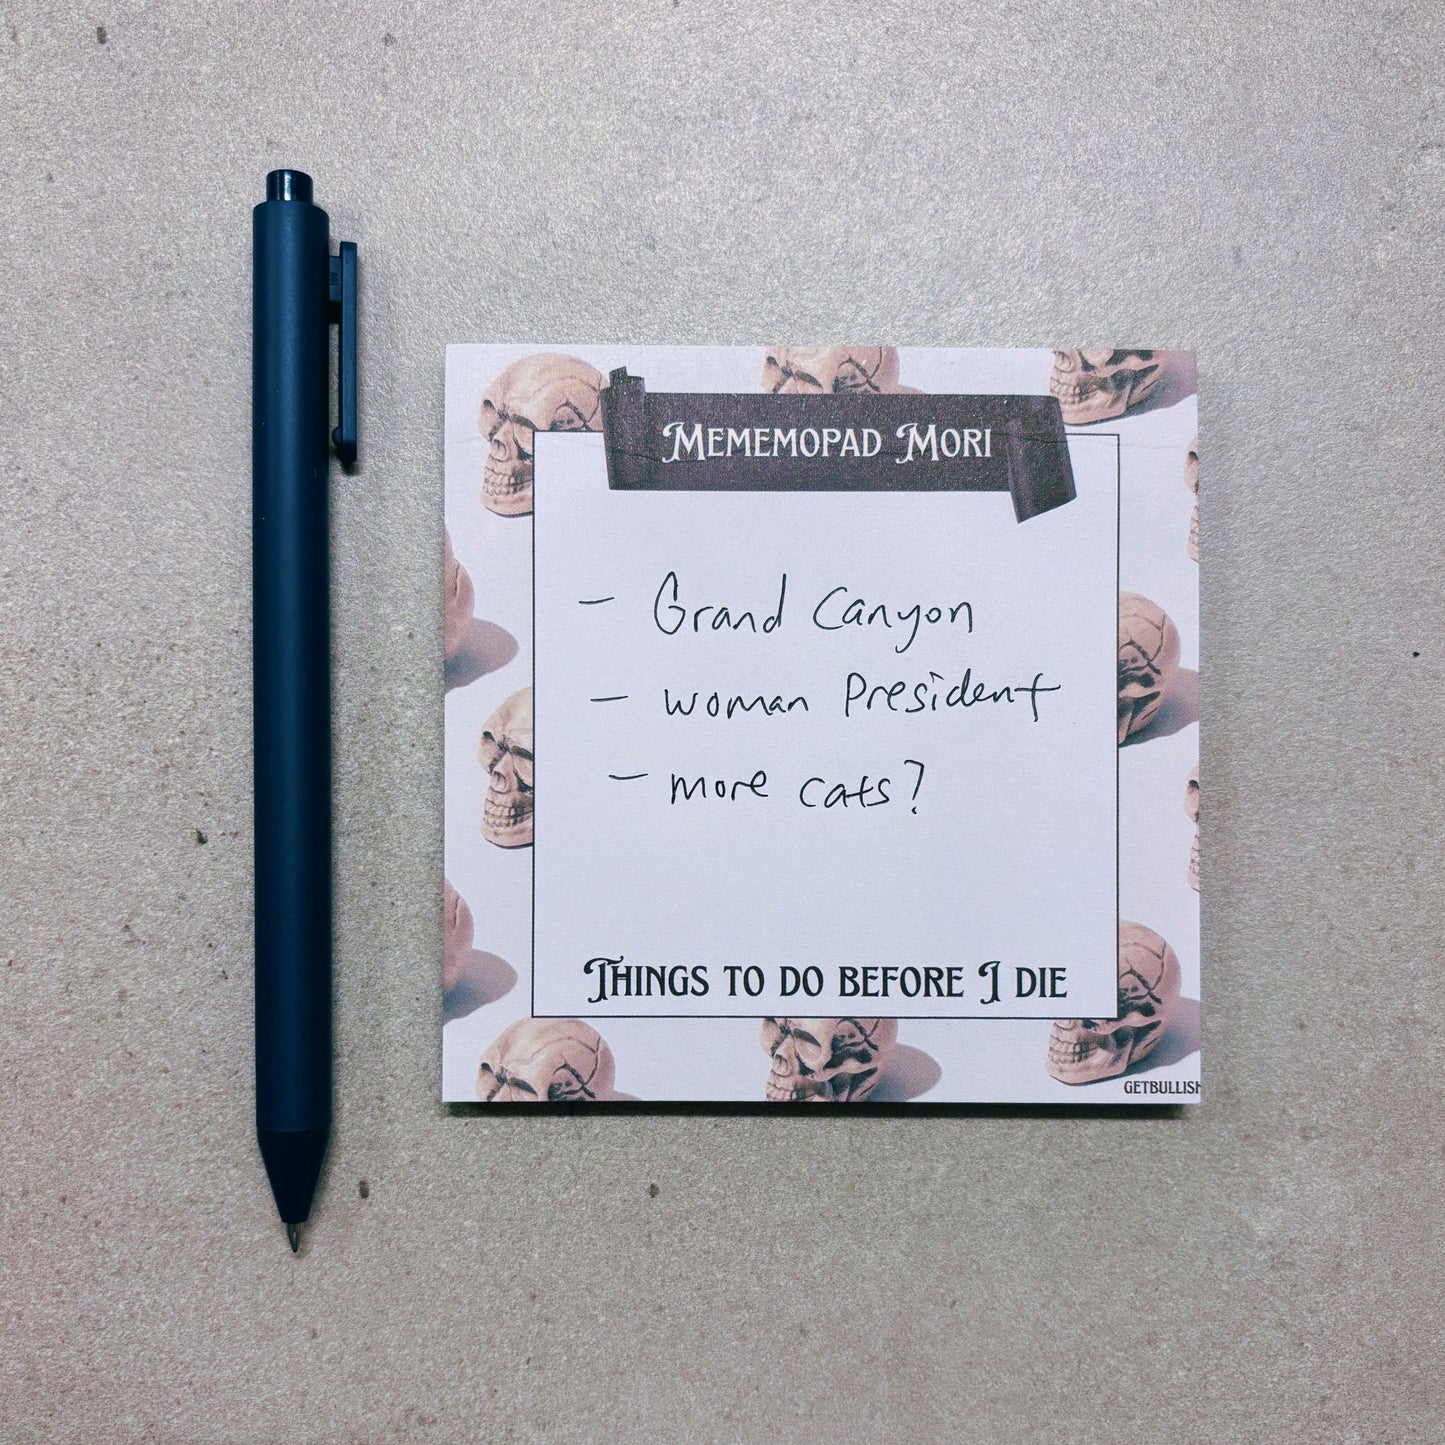 Mememopad Mori
- Grand Canyon
- woman President
- more cats?
Things to do before I die
GETBULLISH